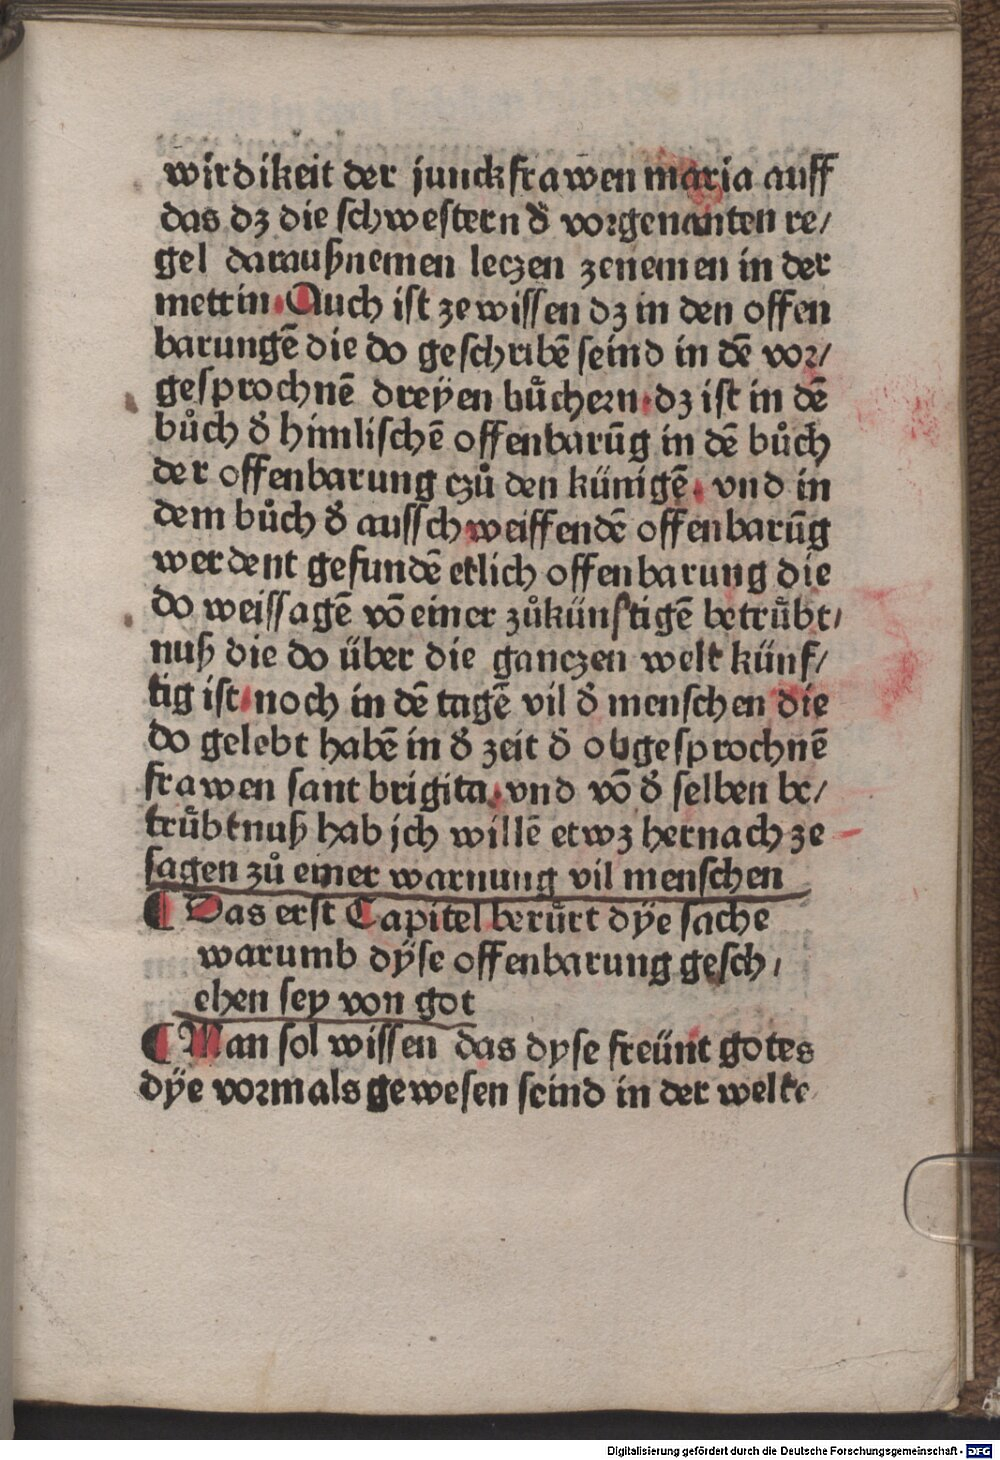 wirdikeit der junckfrawen maria auff
das dz die schwestern d̓ vorgenanten re/
gel daraußnemen leczen zenemen in der
mettin. Auch ist zewissen dz in den offen
barungē die do geschribē seind in dē vor/
gesprochnē dreÿen bůchern. dz ist in dē
bůch d̓ himlischē offenbarūg in dē bůch
der offenbarung czů den künigē. vnd in
dem bůch d̓ aussch weiffendē offenbarūg
werdent gefundē etlich offenbarung die
do weissagē vō einer zůkünftigē betrůbt/
nuß die do über die ganczen welt künf/
tig ist. noch in dē tagē vil d̓ menschen die
do gelebt habē in d̓ zeit d̓ obgesprochnē
frawen sant brigita. vnd vō d̓ selben be/
trůbtnuß hab jch willē etwz hernach ze
sagen zů einer warnung vil menschen
¶ Das erst Capitel berůrt dÿe sache
warumb dÿse offenbarung gesch/
ehen sey von got
¶ Man sol wissen das dyse freünt gotes
dÿe vormals gewesen seind in der welte
Digitalisierung gefördert durch die Deutsche Forschungsgemeinschaft - DFG